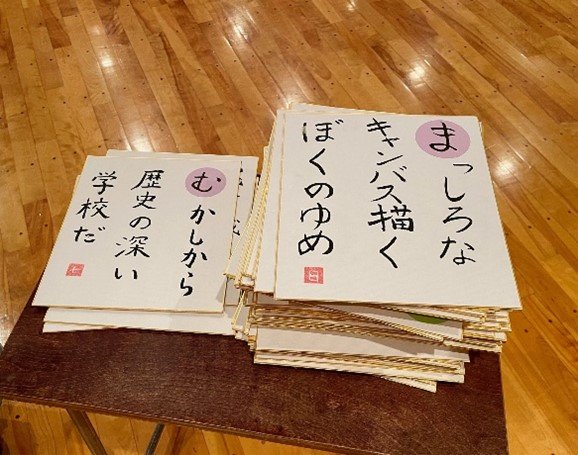 まっしろな
キャンバス描く
ぼくのゆめ
むかしから
歴史の深い
学校だ
七